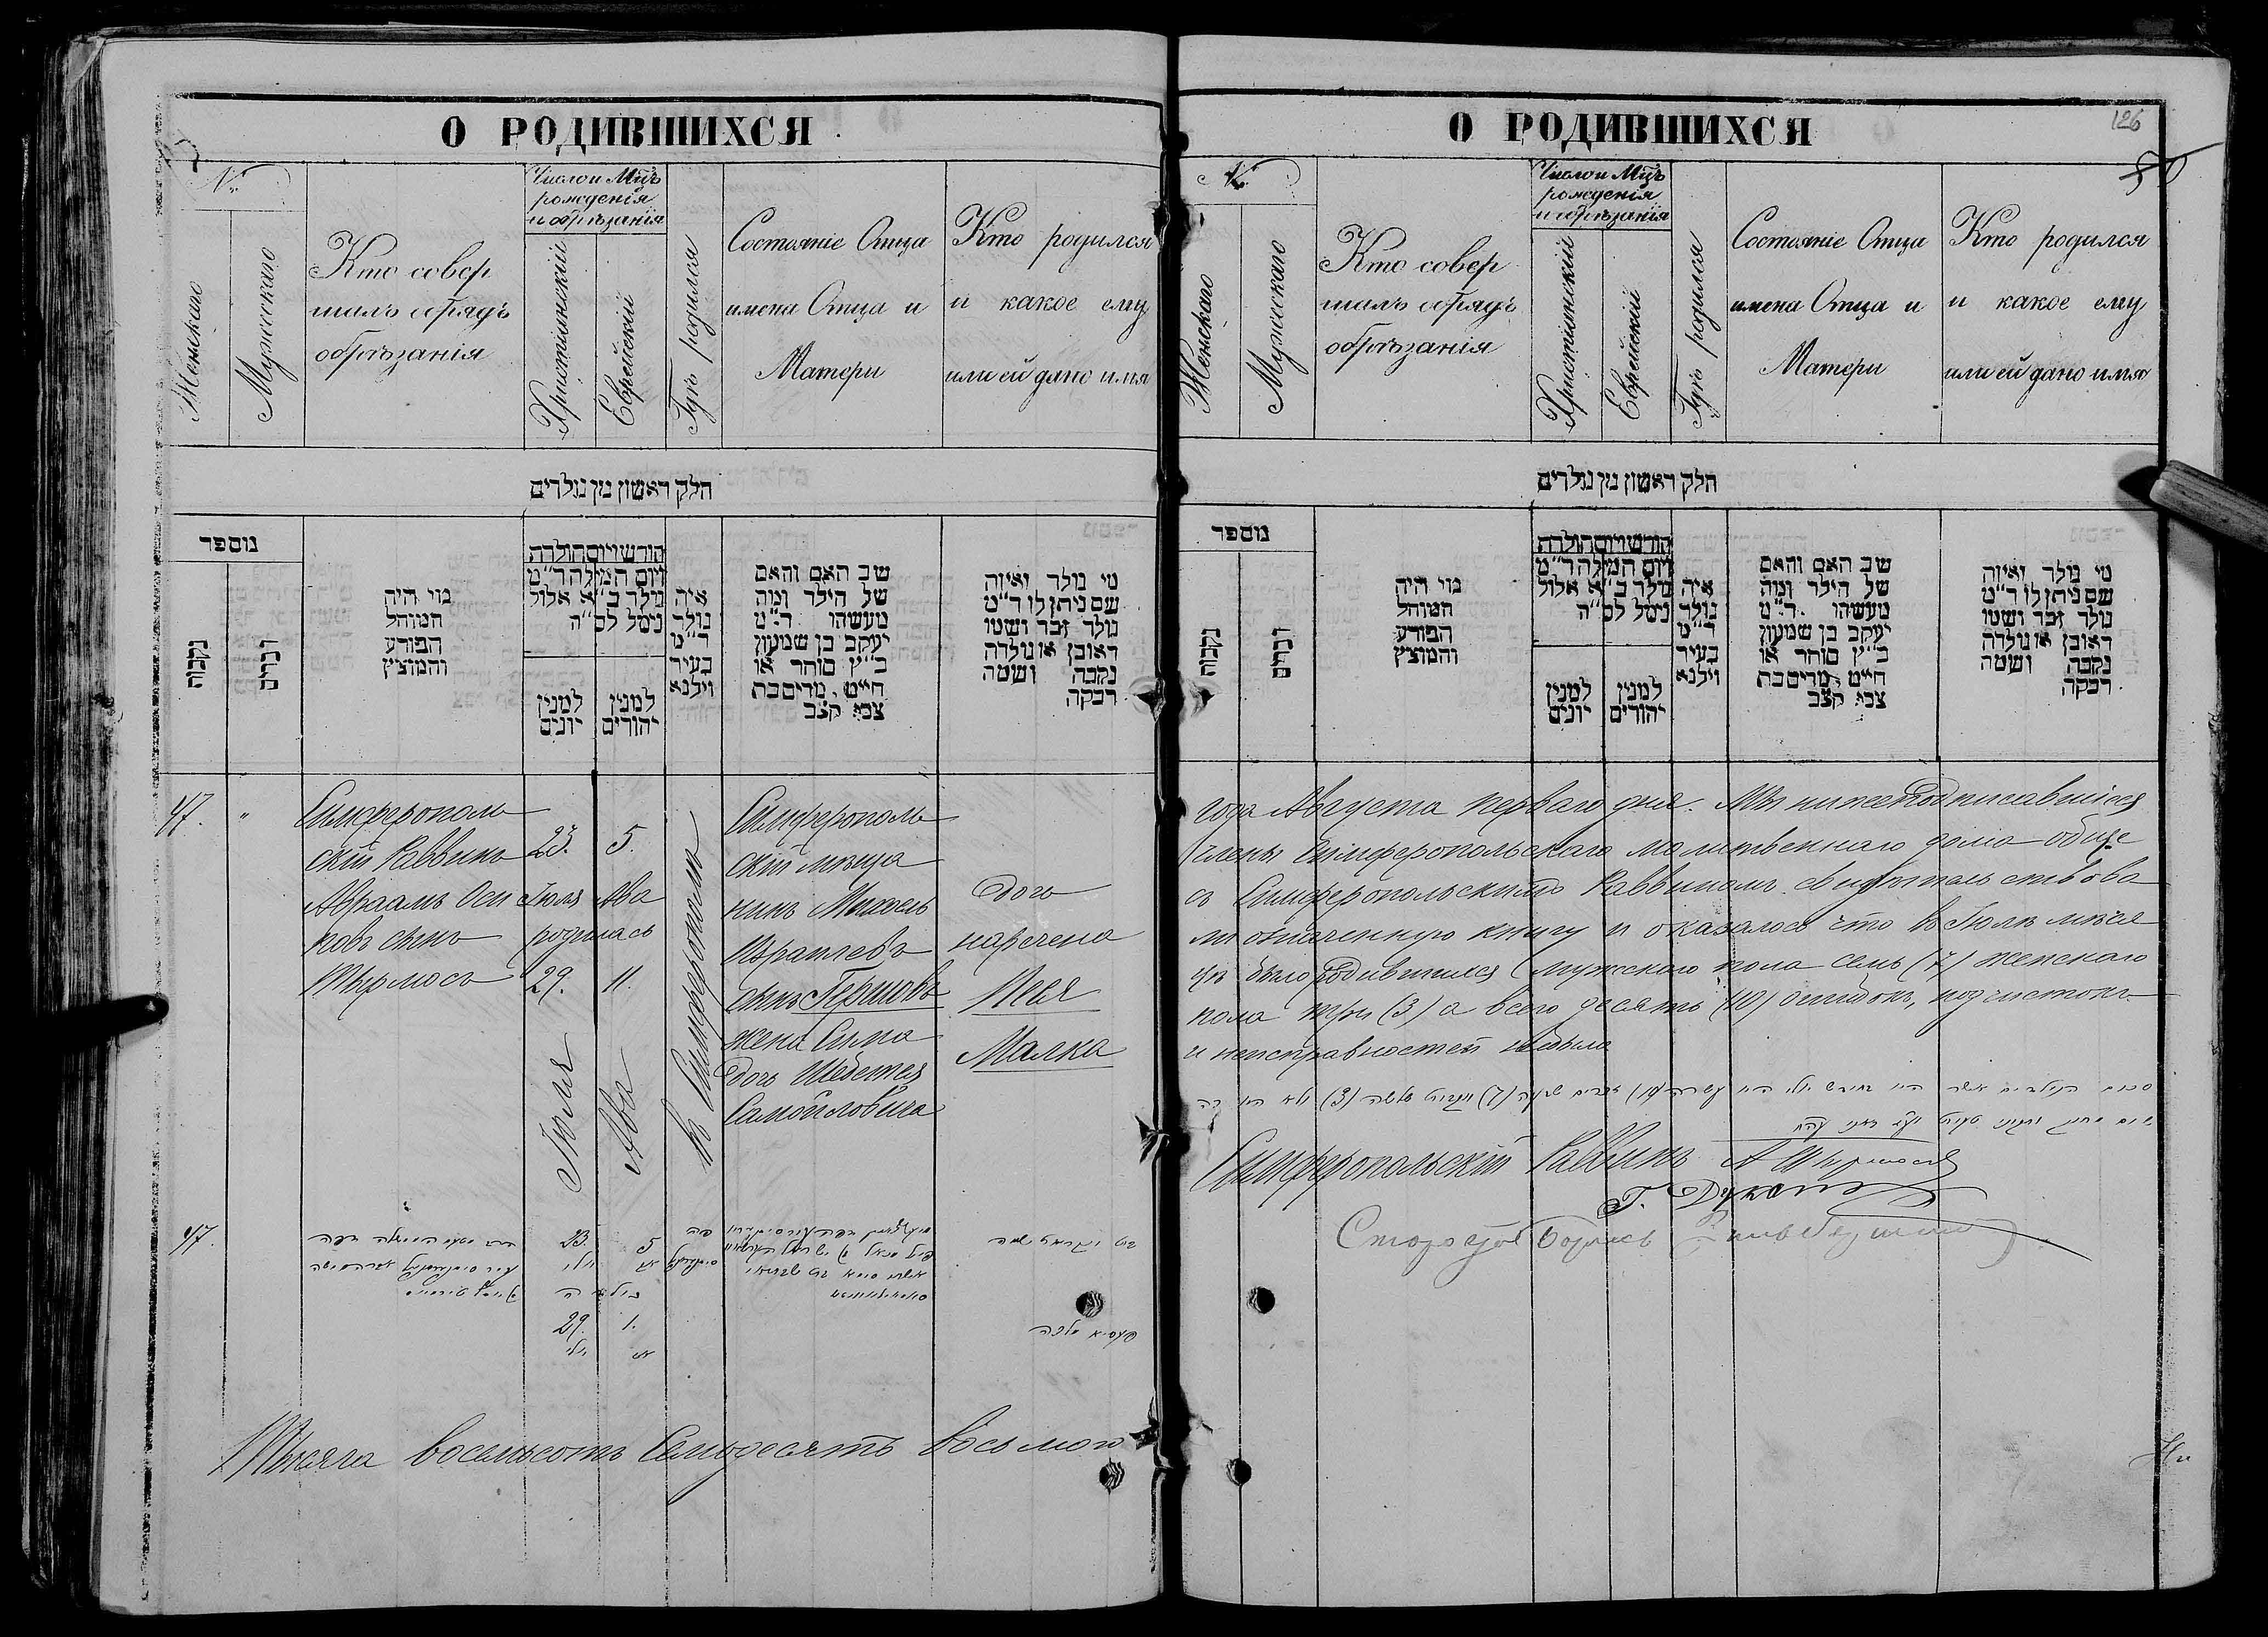 О РОДИВШИХСЯ
№
Женскаго
Мужескаго
Кто совер
шалъ обрядъ
обрѣзанія
Число и Мцъ
рожденія
и обрѣзанія
Христіанскій
Еврейскій
Гдѣ родился
Состояніе Отца
имена Отца и
Матери
Кто родился
и какое ему
или ей дано имя
חלק ראשון מן נולדים
מספר
נקבות
זכרים
מי היה
המוהל
הפורע
והמוציץ
חודש ויום הולדת
ויום המילה ד"מ
נולד ב"א אלול
נימל לס"ה
למנין
יונים
למנין
יהודים
איה
נולד
ד"מ
בעיר
וילנא
שב האם והאם
של הילד ומה
מעשהו ד"מ
יעקב בן שמעון
כ"ץ סוחר או
חייט, מרים בת
צבי קצב
מי נולד ואיזה
שם ניתן לו ד"מ
נולד זכר ושמו
ראובן או נולדה
נקבה ושמה
רבקה
47. "
Симферополь
скій Раввинъ
Авраамъ Оси
повъ сынъ
23. 5.
Іюля Ава
родилась
29. 11.
Іюля
Ава
въ Симферополѣ
Симферополь
скій мѣща
нинъ Михель
Израилевъ
сынъ Гершовъ
жена Сима
дочь Шебетея
Самойловича
дочь
наречена
Песя
Малка
47.
23. 5
יולי אב
29. 1.
יולי אב
פעסיא מלכה
Тысяча восемьсотъ Семьдесятъ восьмого
О РОДИВШИХСЯ
126
№
Женскаго
Мужескаго
Кто совер
шалъ обрядъ
обрѣзанія
Число и Мцъ
рожденія
и обрѣзанія
Христіанскій
Еврейскій
Гдѣ родился
Состояніе Отца
имена Отца и
Матери
Кто родился
и какое ему
или ей дано имя
חלק ראשון מן נולדים
מספר
נקבות
זכרים
מי היה
המוהל
הפורע
והמוציץ
חודש ויום הולדת
ויום המילה ד"מ
נולד ב"א אלול
נימל לס"ה
למנין
יונים
למנין
יהודים
איה
נולד
ד"מ
בעיר
וילנא
שב האם והאם
של הילד ומה
מעשהו ד"מ
יעקב בן שמעון
כ"ץ סוחר או
חייט, מרים בת
צבי קצב
מי נולד ואיזה
שם ניתן לו ד"מ
נולד זכר ושמו
ראובן או נולדה
נקבה ושמה
רבקה
года Августа перваго дня. Мы нижеподписавшіеся
члены Симферопольскаго молитвеннаго дома обще
съ Симферопольскимъ Раввиномъ свидѣтельствова
ли означенную книгу и оказалось что въ Іюлѣ мѣся
цѣ было родившихся мужескаго пола семь (7) женскаго
пола три (3) а всего десять (10) ошибокъ, подчистокъ
и неисправностей не было
Симферопольскій Раввинъ
Староста Борисъ